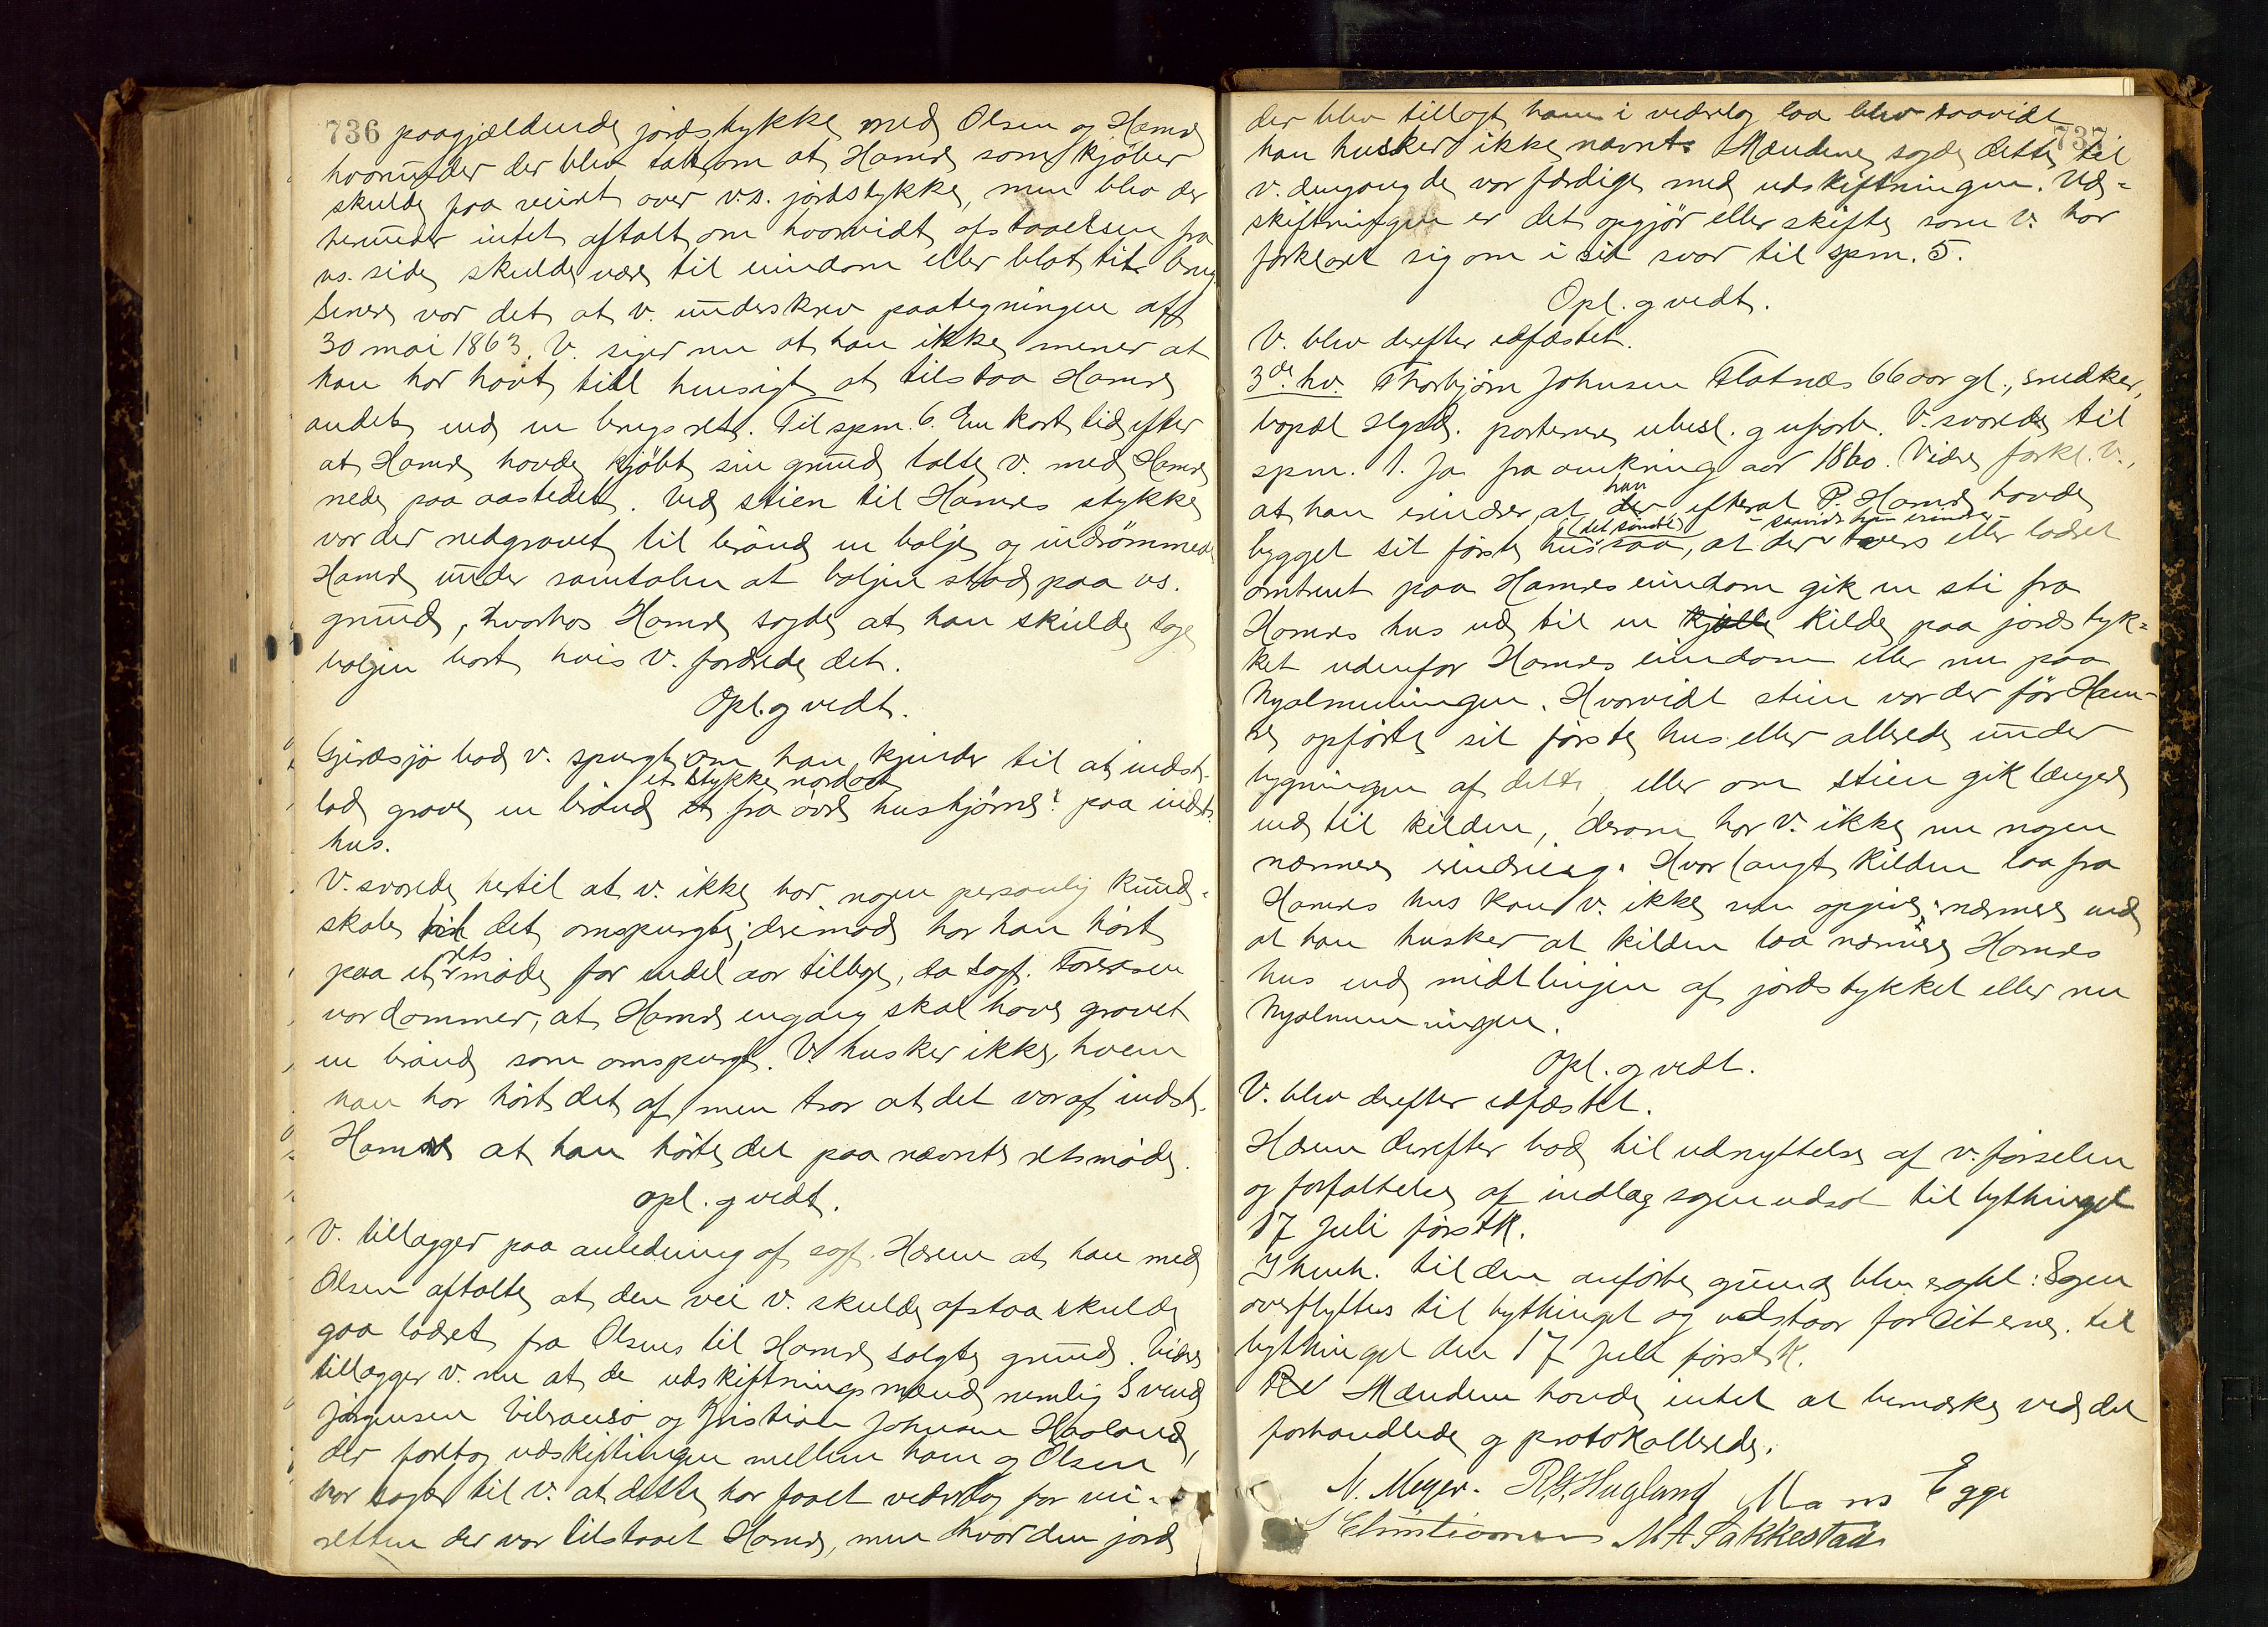 736 paagjældende jordstykke med Olsen og Hamre
hvorunder der blev talt om at Hamre som kjöber
skulde faa veiret over v.s. jordstykke, men blev der
herunder intet aftalt om hvorvidt afstaaelsen fra
vs. side skulde være til eiendom eller blot til brug
Senere var det at v. underskrev paategningen aff
30 mai 1863. V. siger nu at han ikke mener at
han har havt till hensigt at tilstaa Hamre
andet end en brugsret. Til spm. 6. En kort tid efter
at Hamre havde kjöbt sin grund talte v. med Hamre
nede paa aastedet. Ved stien til Hamres stykke
var der nedgravet til brönd en balje og indrömmede
Hamre under samtalen at baljen stod paa vs.
grund, hvorhos Hamre sagde at han skulde tage
baljen bort hvis V. fordrede det.
Opl. g vedt.
Gjerdsjö bad v. spurgt om han kjender til at indst.
et stykke nordost
lod grave en brönd et fra övre hushjörne? paa indst.
hus.
V. svarede hertil at v. ikke har nogen personlig kund-
skab til det omspurgte; derimod har han hört
paa et retsmöde for endel aar tilbage, da sagf. Toresen
var dommer, at Hamre engang skal have gravet
en brönd som omspurgt. V. husker ikke, hvem
han har hört det af, men tror at det var af indst.
Hamre at han hörte det paa nævnte retsmöde.
opl. g vedt.
V. tillægger paa anledning af sagf. Hærem at han med
Olsen aftalte at den vei v. skulde afstaa skulde
gaa lodret fra Olsens til Hamre solgte grund. Videre
tillægger v. nu at de udskiftningsmænd nemlig Svend
Jörgensen Vibrandsö og Kristian Johnsen Haaland,
der foretog udskiftingen mellem ham og Olsen
har sagt til v. at dette har faaet vederlag for vei-
retten der var tilstaaet Hamre, men hvor den jord
737
der blev tillagt ham i vederlag laa blev saavidt
han husker ikke nævnt. Mændene sagde dette til
v. dengang de var færdige med udskiftningen. Ud-
skiftningen er det opgjör eller skifte som v. har
forklaret sig om i sit svar til spm. 5.
Opl. g vedt.
V. blev derefter edfæstet.
3de hv. Thorbjörn Johnsen Flatnæs 66 aar gl., snedker,
bopæl Hgsd. parterne ubesl. g uforb. V. svarede til
spm. 1. Ja fra omkring aar 1860. Videre forkl. V.,
at han erindrer at der han efterat P. Hamre havde
bygget sit förste hus (det söndre) saa, at der - saavidt han erindrer - tvers eller lodret
omtrent paa Hamres eiendom gik en sti fra
Hamres hus ud til en kjelle kilde paa jordstyk-
ket udenfor Hamres eiendom eller nu paa
Nyalmenningen. Hvorvidt stien var der för Ham-
re opförte sit förste hus eller allerede under
bygningen af dette, eller om stien gik længere
end til kilden, derom har v. ikke nu nogen
nærmere erindring. Hvor langt kilden laa fra
Hamres hus kan v. ikke nu opgive nærmere end
at han husker at kilden laa nærmere Hamres
hus end midtlinjen af jordstykket eller nu
Nyalmenningen.
Opl. g vedt.
V. blev derefter edfæstet.
Hærem derefter bad til udnyttelse af v. förselen
og forfattelse af indlæg sagen udsat til bythinget
17 Juli förstk.
I henh. til den anförte grund blev eragtet: Sagen
overflyttes til bythinget og udstaar for Citerne. til
bythinget den 17 Juli förstk.
Re Mændene havde intet at bemærke ved det
forhandlede g protokollerede.
N. Meyer. R. G. Hagland Mans Egge
S Christiansen M A Sakkestad